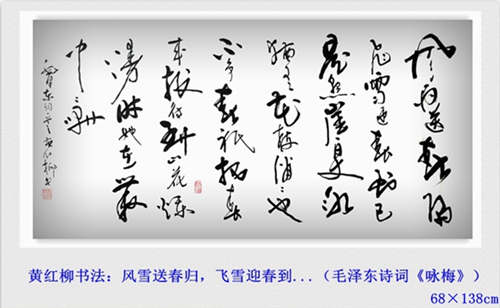 风雨送春归
飞雪迎春到已
是悬崖百丈冰
犹有花枝俏〻也
不争春祇把春
来报待到山花烂
漫时她在丛
中笑
黄红柳书法：风雪送春归，飞雪迎春到...（毛泽东诗词《咏梅》）
68×138cm